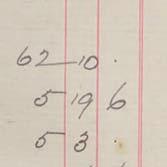 62 10 .
5 19 6
5 3 .